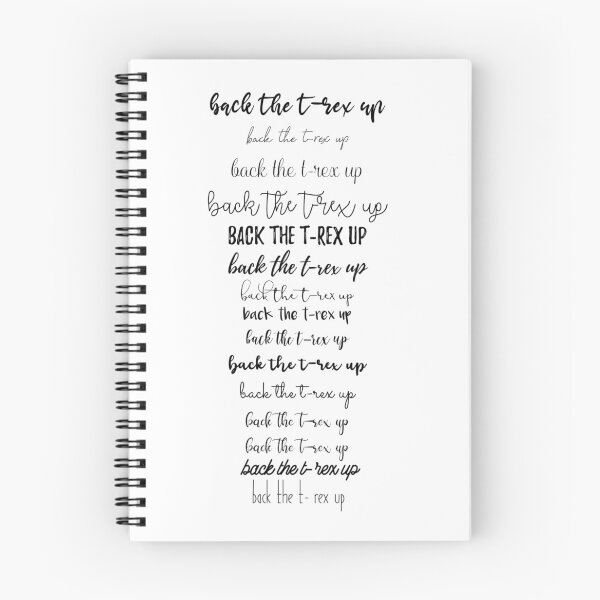 back the t-rex up
back the t-rex up
back the t-rex up
back the t-rex up
BACK THE T-REX UP
back the t-rex up
back the t-rex up
back the t-rex up
back the t-rex up
back the t-rex up
back the t-rex up
back the t-rex up
back the t-rex up
back the t-rex up
back the t- rex up